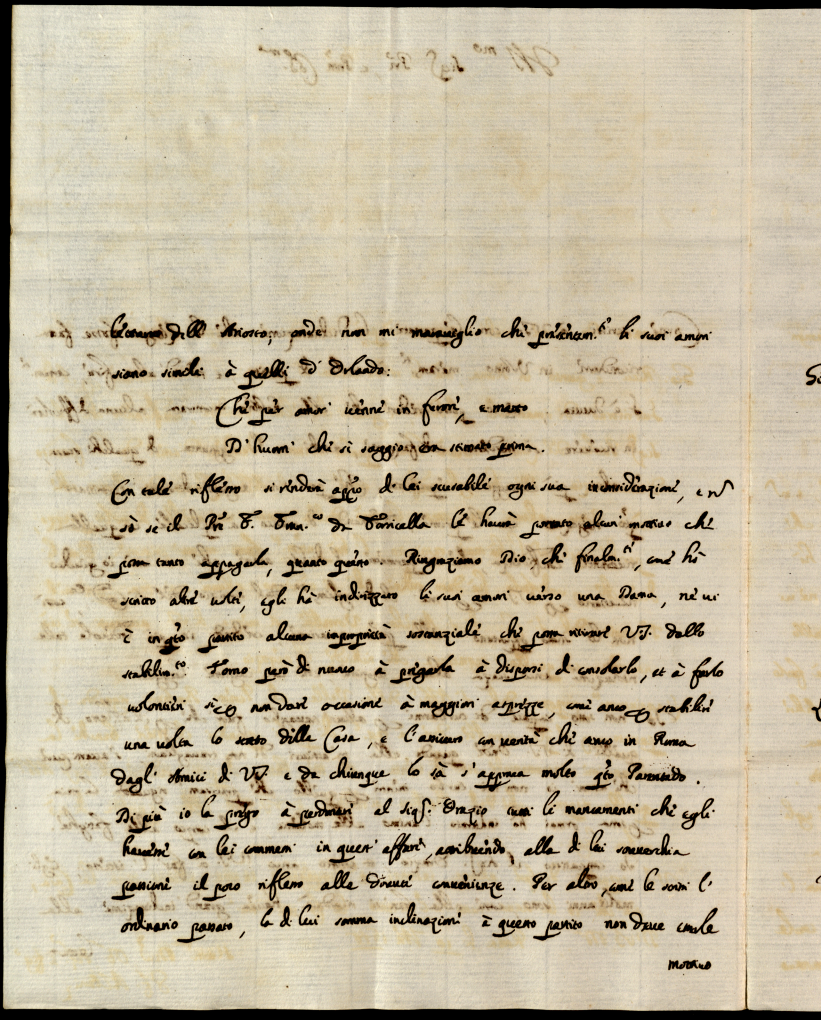 dell' Ariosto; onde non mi maraviglio che presentem.te li suoi amori
siano simili à quelli d' Orlando:
Che per amor venne in furore, e matto
D' huom che sì saggio era stimato prima.
Con tale riflesso si renderà app.o di lei scusabile ogni sua inconsiderazione, e nō
sò se il Pre F. Fran.co da Torricella le haverà portato alcun motivo che
possa tanto appagarla, quanto questo. Ringraziamo Dio, che finalm.te, come hò
scritto altre volte, egli hà indirizzato li suoi amori verso una Dama, ne vi
è in q.to partito alcuna improprietà sostanziale che possa ritirare V.S. dallo
stabilim.to. Torno però di nuovo à pregarla à disporsi di consolarlo, et à farlo
volontieri sì p non dare occasione à maggiori asprezze, come anco p stabilire
una volta lo stato della Casa, e l'assicuro con verità che anco in Roma
dagl' Amici di V.S. e da chiunque lo sà s'approva molto q.to Parentado.
Di più io la prego à perdonare al Sig.r Orazio tutti li mancamenti che egli
havesse con lei commessi in quest' affare, attribuendo alla di lui soverchia
passione il poco riflesso alle dovute convenienze. Per altro, come le scrissi l'
ordinario passato, la di lui somma inclinazione à questo partito non deve
motivo